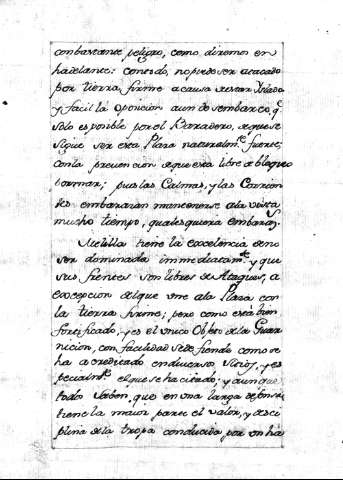 conbastante peligro, como diremos en
hadelante: contodo, nopuede ser atacado
por tierra firme acausa deestar Yslada
y facil la oposicion aun desembarco, q.e
solo es posible por el Baradero, deque se
sigue ser esta Plaza naturalm.te fuerte;
conla prevencion deque esta libre de bloqueo
por mar; pues las Calmas, y las Corrien
tes embarazan mantenerse ala vista
mucho tiempo, quales quiera embaraz.s
Melilla tiene la excelencia deno
ser dominada immediatam.te y que
sus frentes son libres de Ataques, a
excepcion delque vne ala Plaza con
la tierra firme; pero como está bien
fortificado, y es el vnico Objeto dela Guar
nicion, con facilidad sede fiende como se
ha acreditado endiversos Sitios, y es
pecialm.te elque se ha citado; y aunque
todos saben, que en vna larga defensa
tiene la maior parte el valor, y desci
plina dela tropa conducida por vn ha